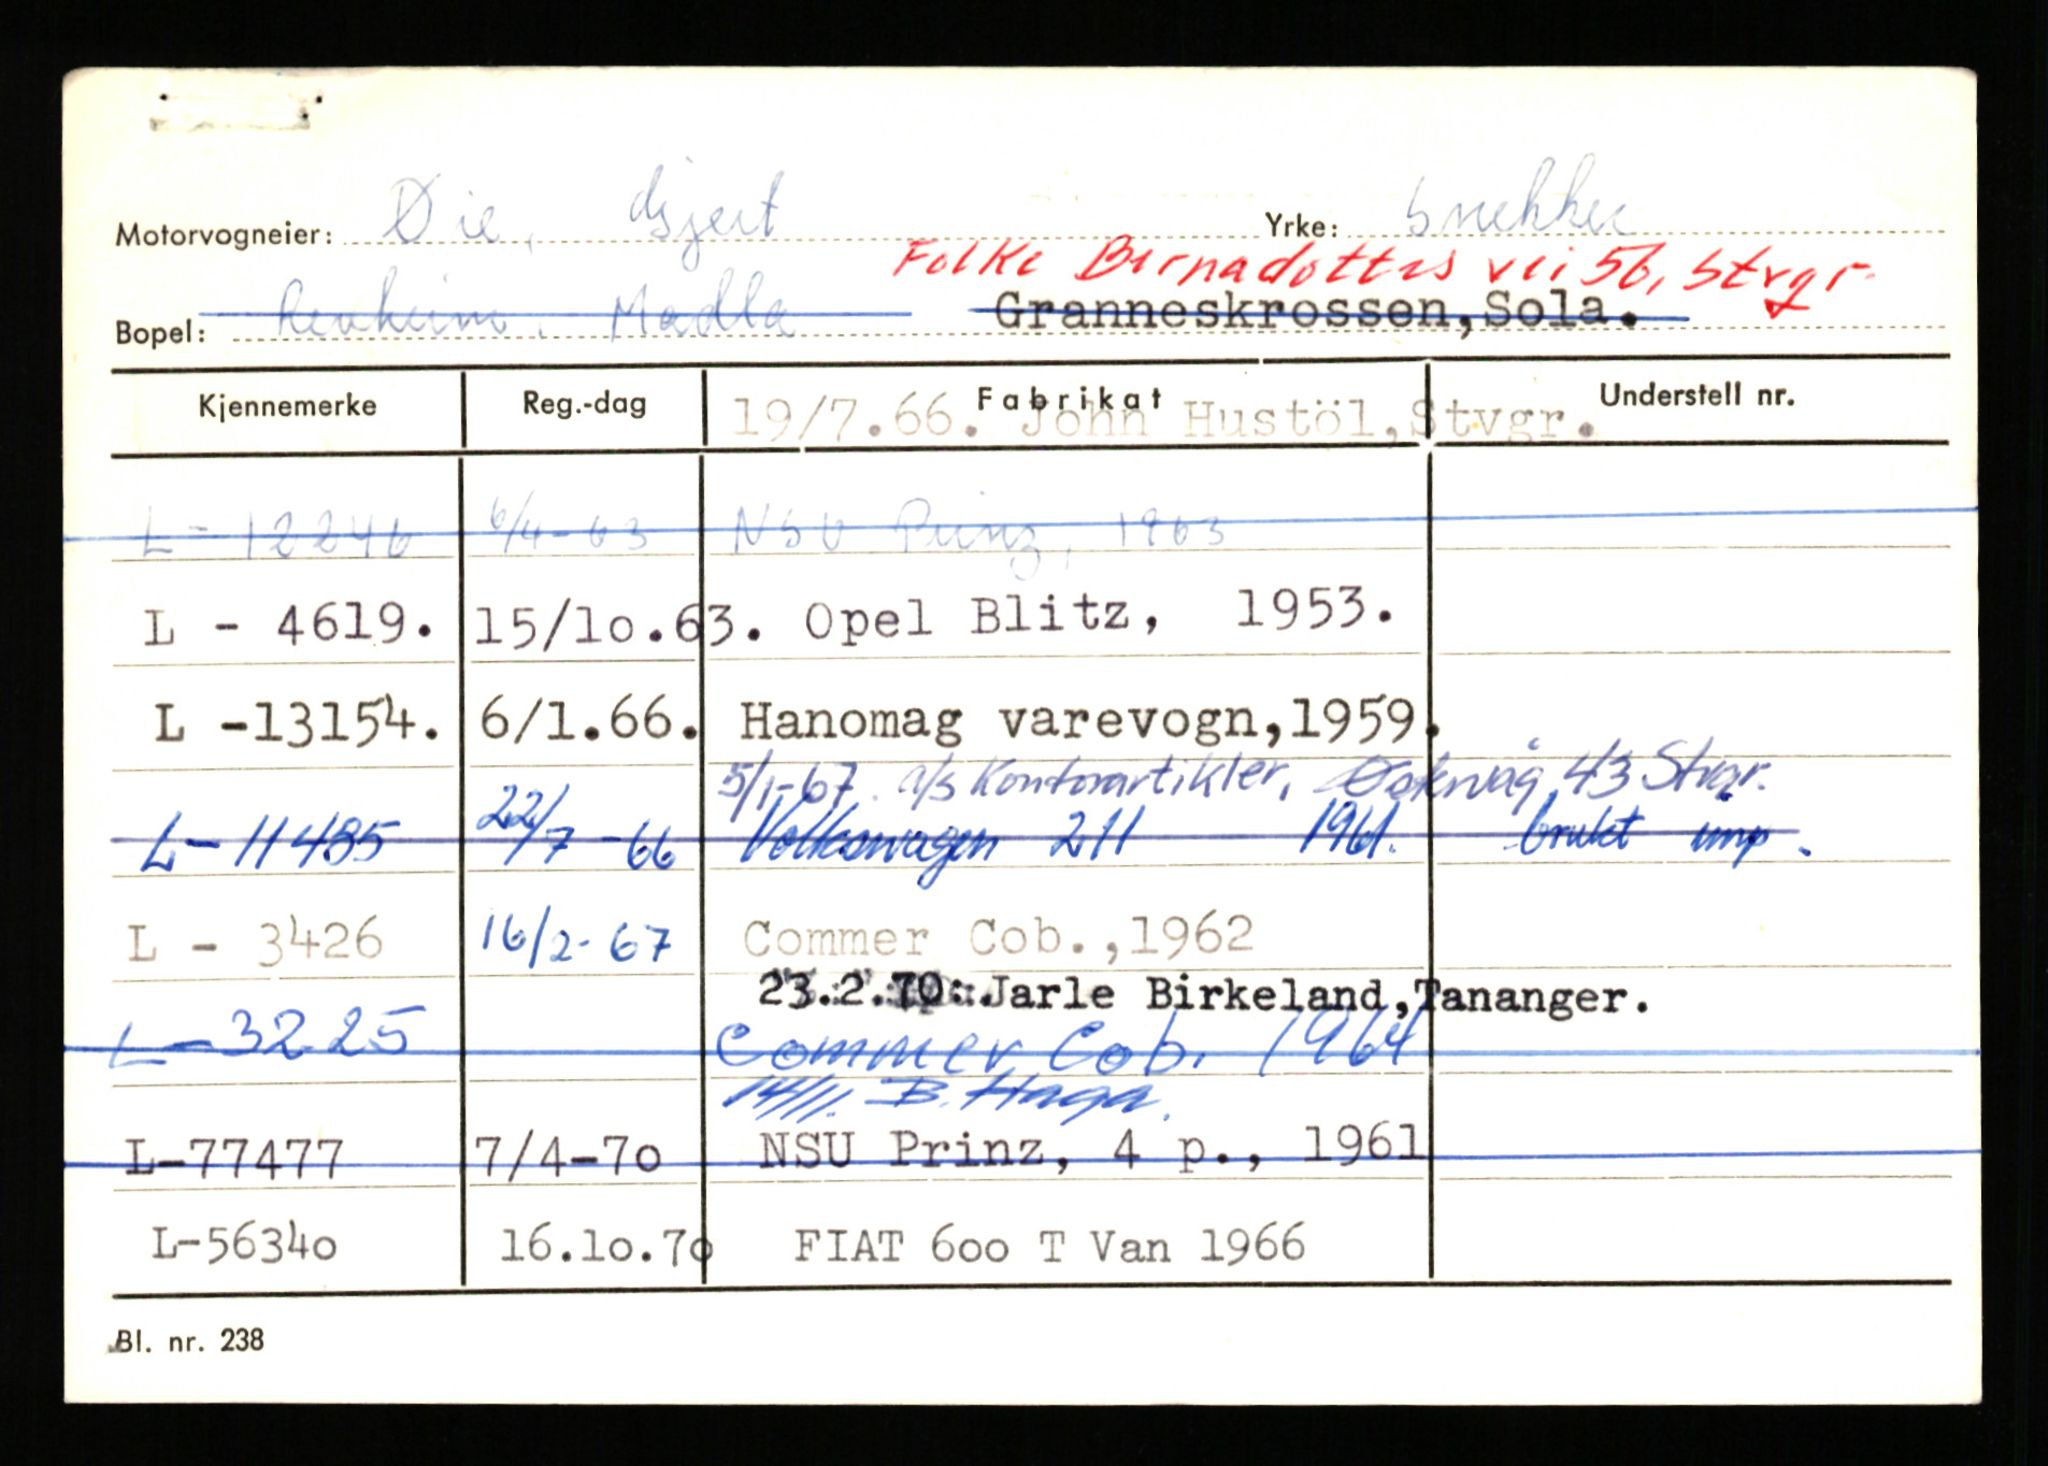 Motorvogneier: Øie, Yrke: snekker
Folke Bernadottes vei 56, Stvgr.
Bopel: Madla Granneskrossen,Sola.
Kjennemerke Reg.-dag Fabrikat Understell nr.
19/7.66. John Hustöl,Stvgr.
L - 12246 6/4-63 NSU Prinz, 1963
L - 4619. 15/10.63. Opel Blitz, 1953.
L -13154. 6/1.66. Hanomag varevogn,1959.
5/1-67. a/s Kontorartikler, 43 Stvgr.
L-11485 22/7-66 Volkswagen 211 1961. brukt imp.
L - 3426 16/2-67 Commer Cob.,1962
23.2.70:Jarle Birkeland,Tananger.
L-3225 Commer Cob. 1964
14/11. B. Haga.
L-77477 7/4-70 NSU Prinz, 4 p., 1961
L-56340 16.10.70 FIAT 600 T Van 1966
Bl. nr. 238